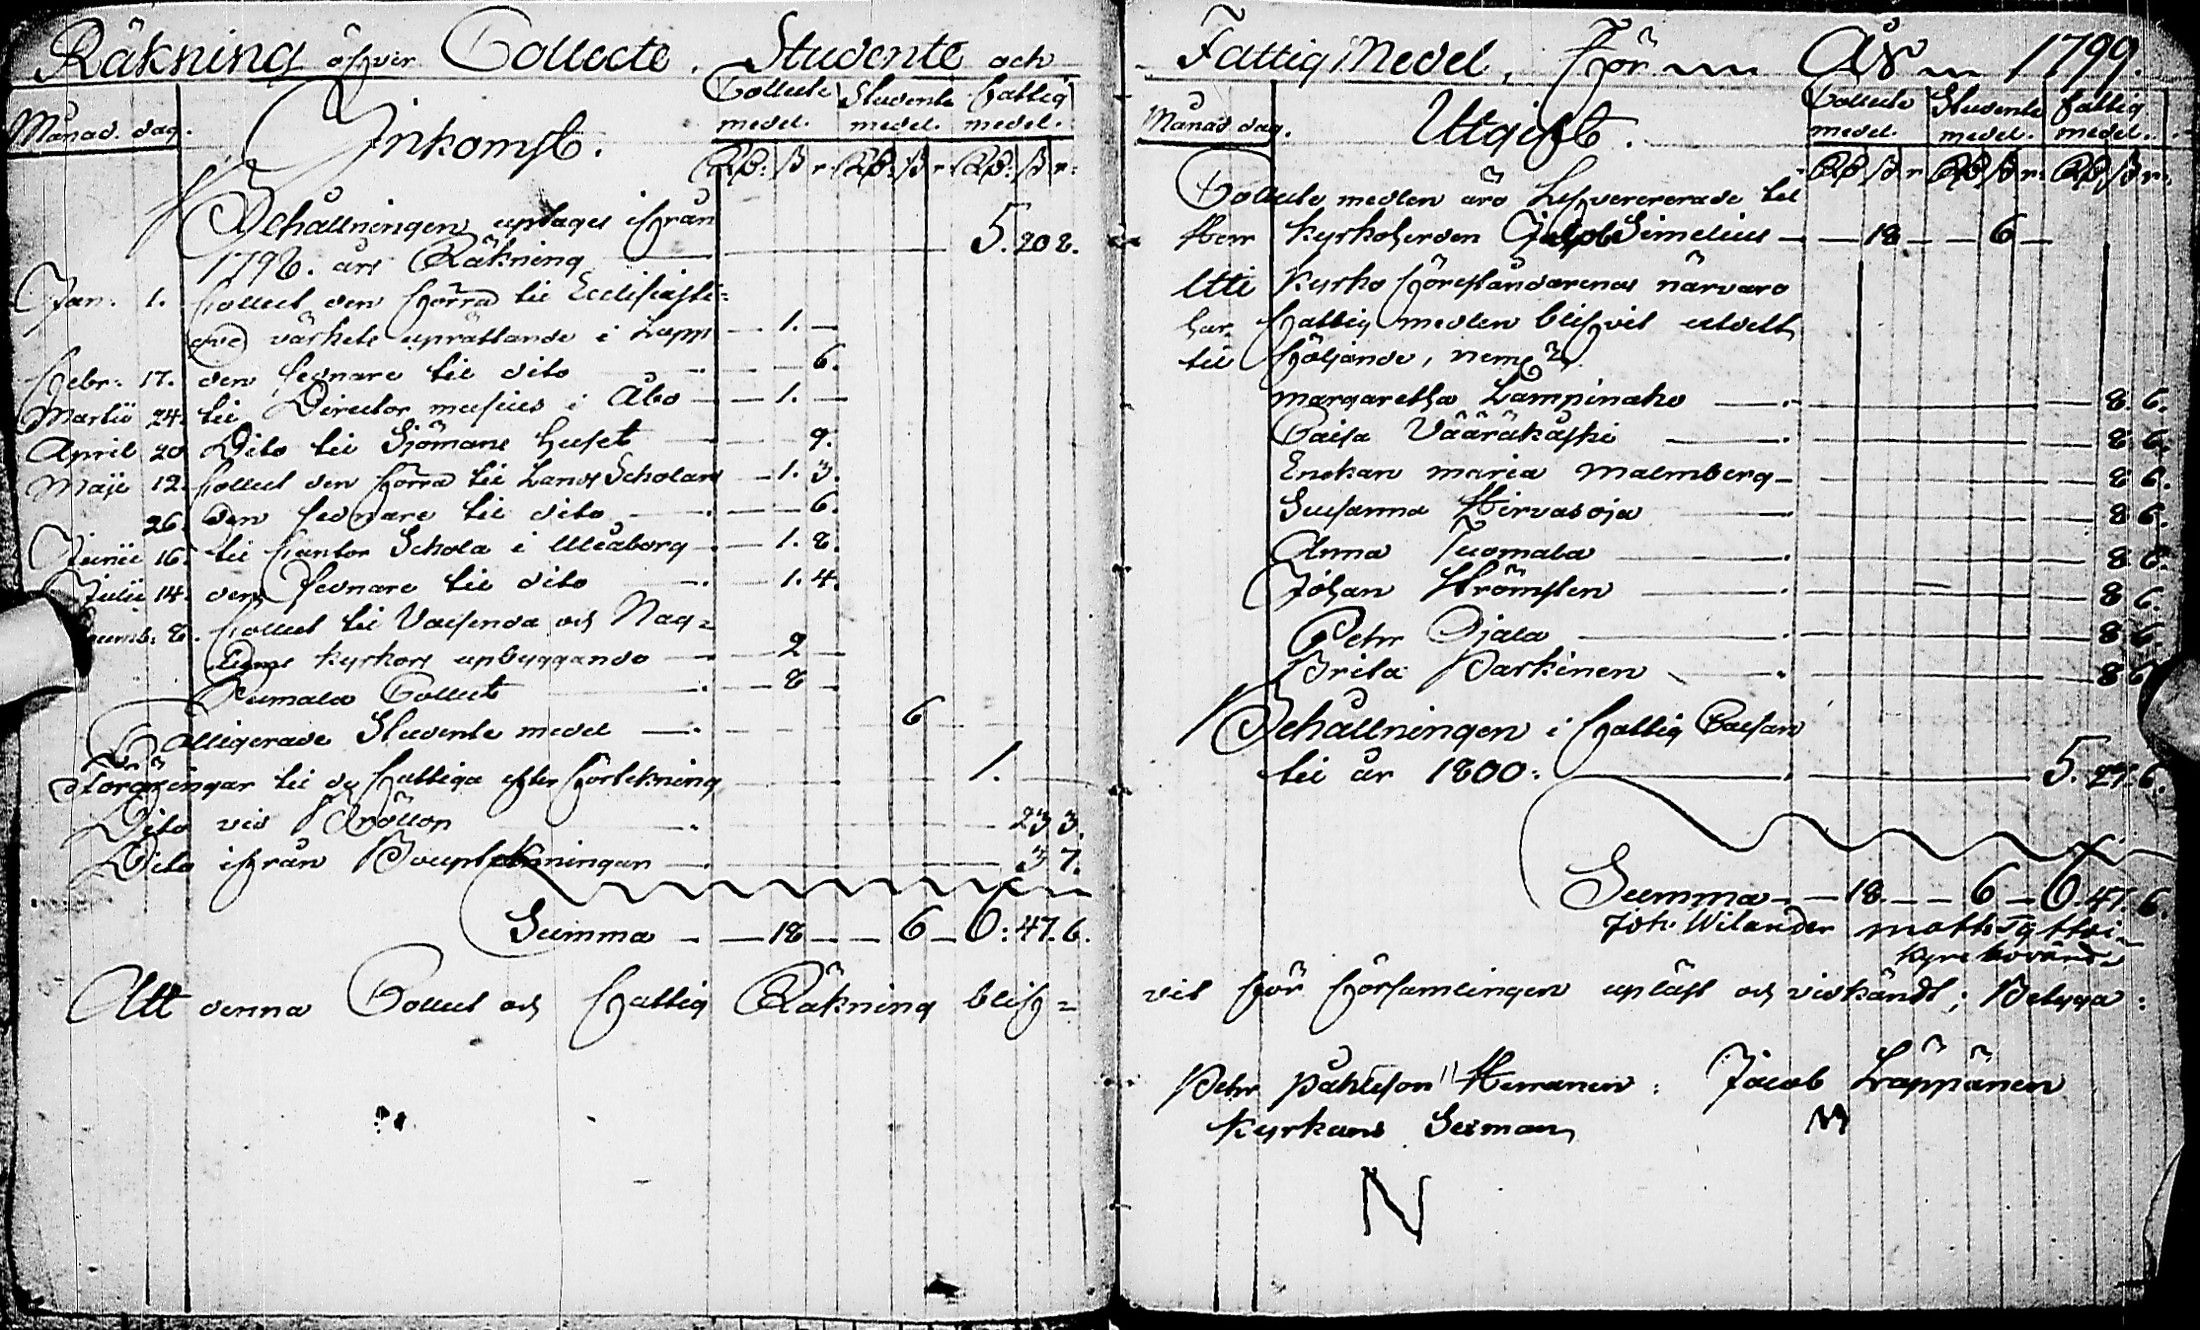 Räkning öfver Collecte, Studente och
Månad. dag.
Inkomst.
Collecte medel. Studente medel. Fattig medel.
Rd: ß r. Rd: ß r. Rd: ß r.
Behållningen uptages ifrån
1798. års Räkning 5. 20 8.
Jan. 1. Collect den förra til Ecclesiasti=
que värkets uprättande i Lapp 1.
Febr: 17. den sednare til dito 6.
Martii 24. til Director musices i Åbo 1.
April 20 Dito til Sjömans huset 9.
Maji 12. Collect den förra til Lands Scholan 1. 3.
26. den sednare til dito 6.
Junii 16. til Cantor Schola i Uleåborg 1. 8.
Julii 14. den sednare til dito 1. 4.
8. Collect til Vaisenda och Nag=
kyrkors upbyggande 2
Pumala Collect 8
Colligerade Studente medel 6
til de fattiga efter förtekning 1.
Dito vid Bröllop 23 3.
Dito ifrån Bouptekningar 3 7.
Summa 18 6 6: 47. 6.
Att denna Collect och fattig Räkning blif=
Fattig Medel, För År 1799.
Månad dag.
Utgift.
Collecte medel. Studente medel. fattig medel.
Rd ß r. Rd ß r. Rd ß r.
Collecte medlen äro Lefvererade til
Herr Kyrkoherden Simelius 18 6
Uti Kyrko föreståndarenas närvaro
har fattig medlen blifvit utdelt
til följande, neml:
Margaretha Lampinaho 8. 6.
Caisa Vääräkäski 8. 6.
Enckan Maria Malmberg 8 6.
Susanna Hirvasoja 8 6.
Anna Tuomala 8 6.
Johan Strömsten 8 6.
Petr Ojala 8 6.
Brita Parkinen 8 6
Behållningen i fattig Cassan
til år 1800: 5. 27. 6.
Summa 18. 6 6. 47. 6.
Joh: Wilander
vit för församlingen upläst och vidkändt; Betyga:
Petr Påhlsson Herranen: Jacob Läppänen
Kyrkans Sexman
N